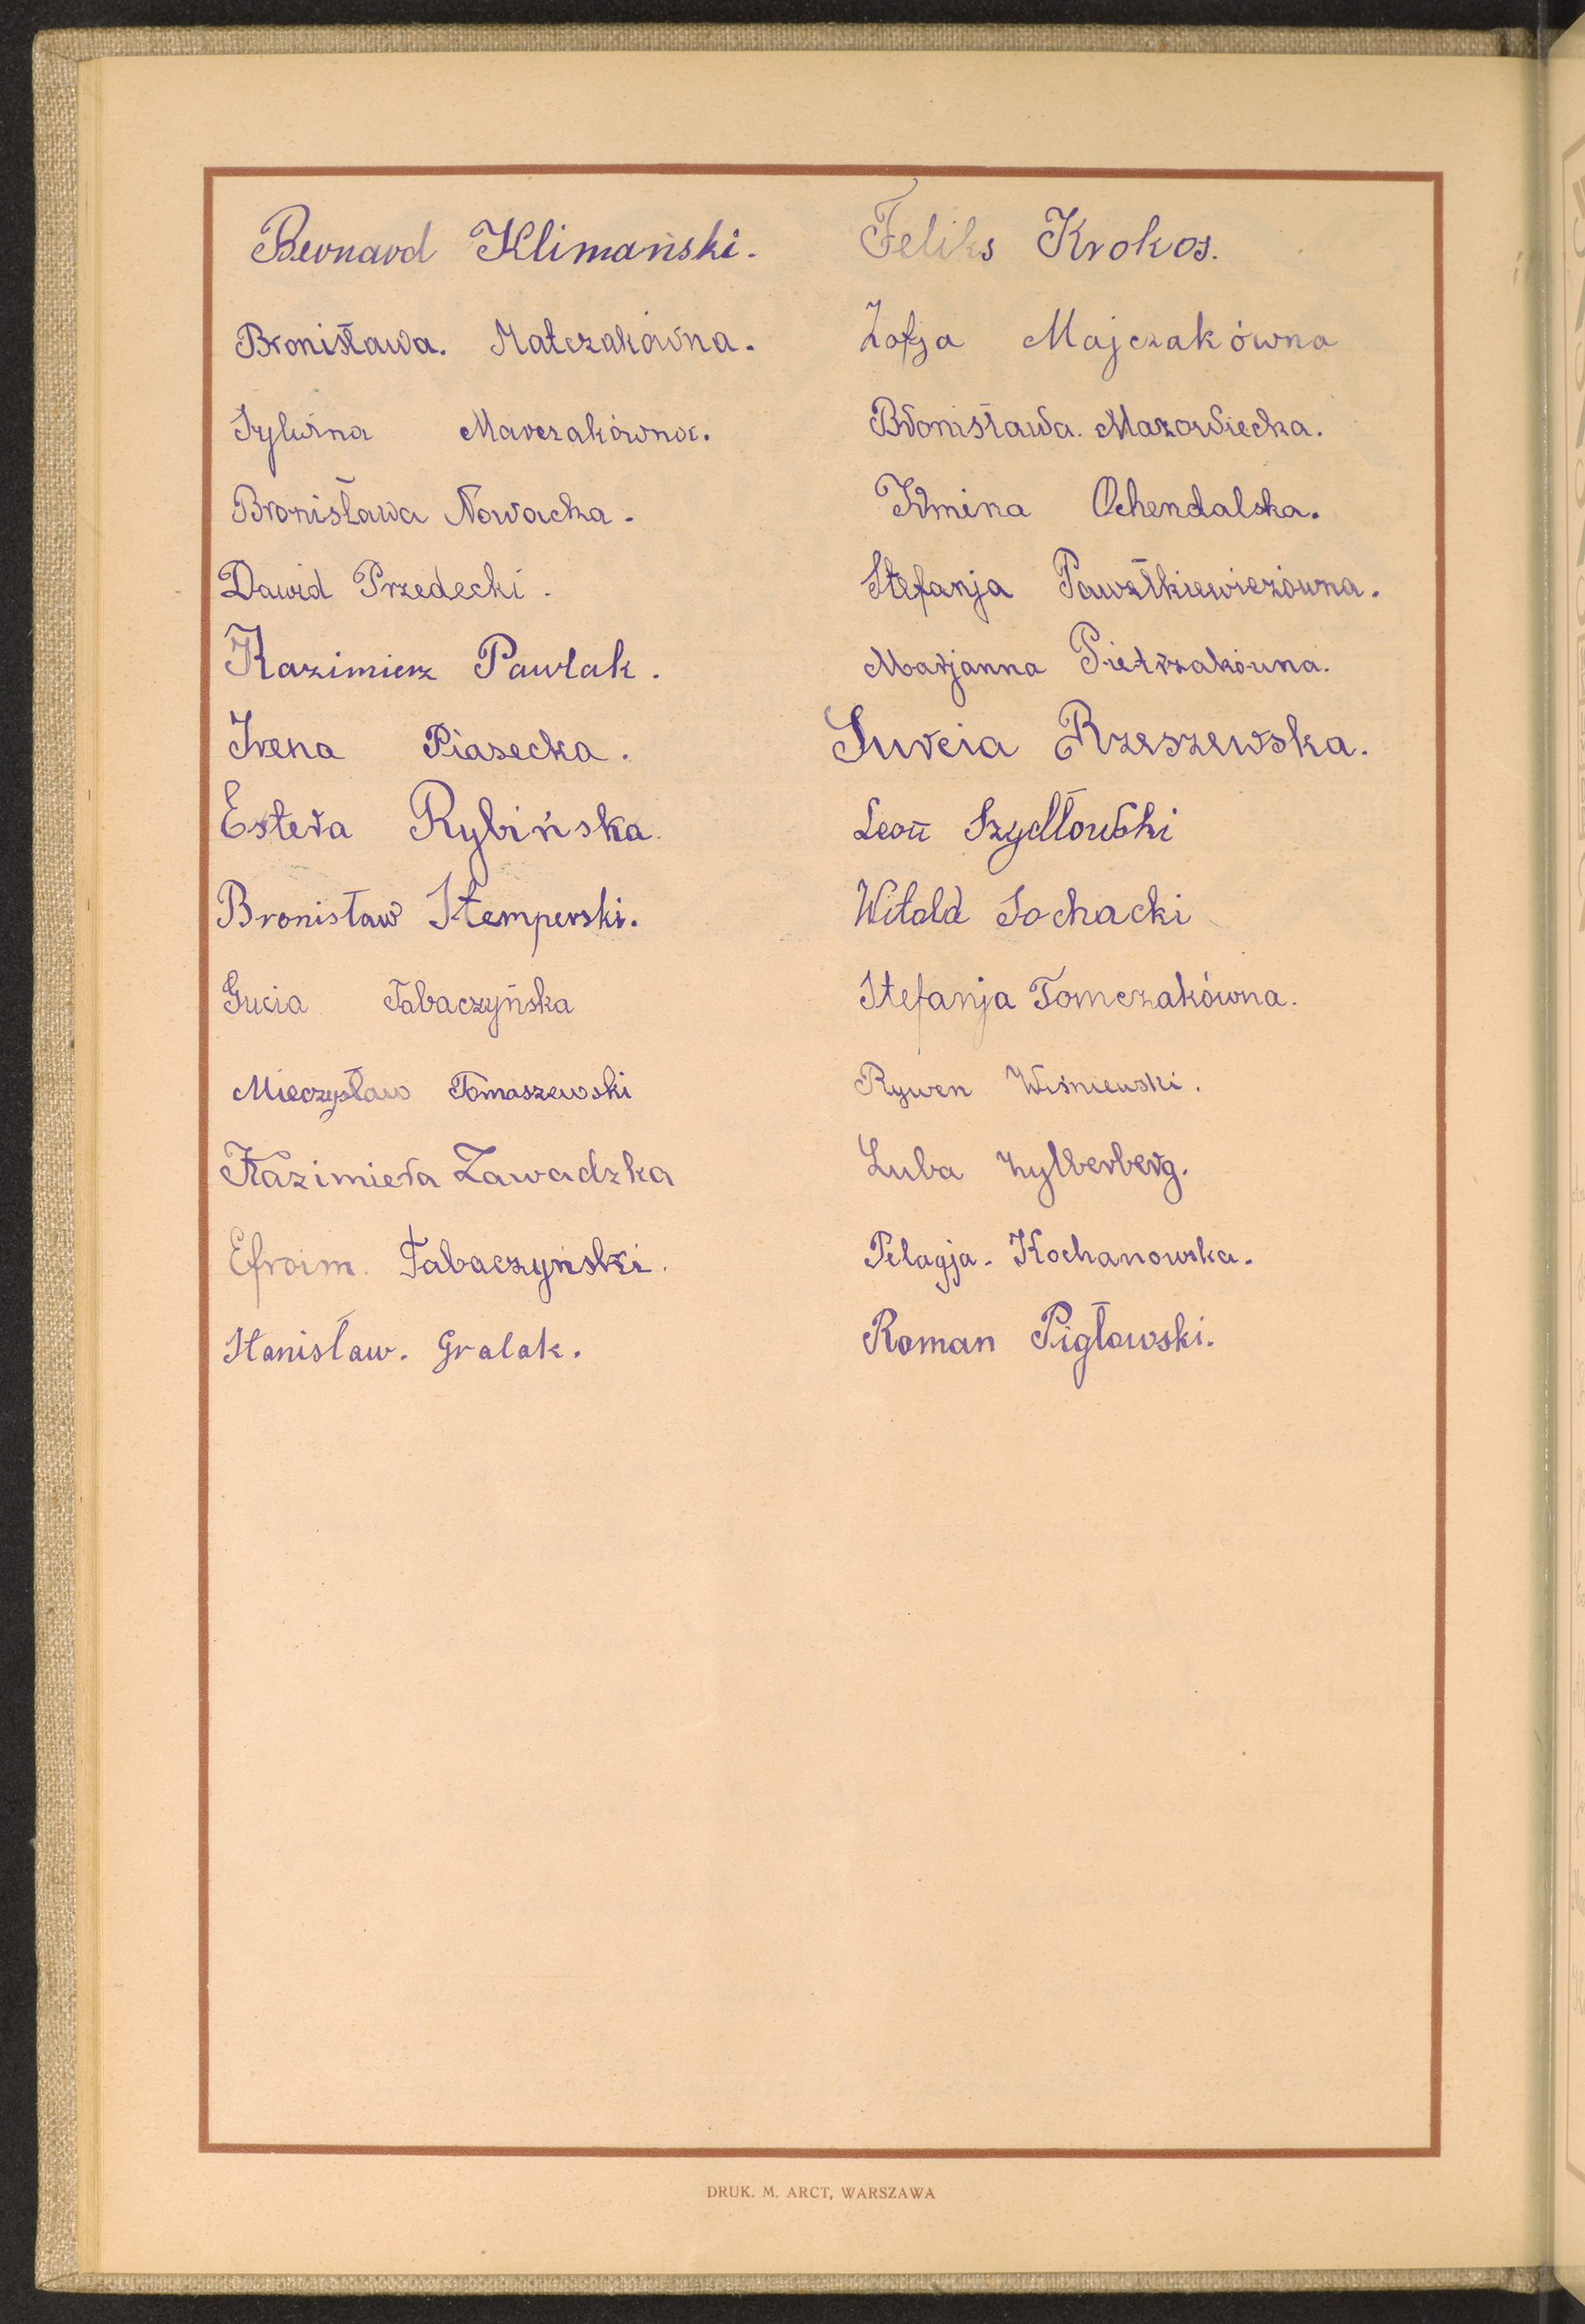 Bernard Klimański. Feliks Krokos.
Bronisława. Małczakówna. Zofja Majczakówna
Sylwina Marczakówna. Bronisława. Mazowiecka.
Bronisława Nowacka. Irmina Ochendalska.
Dawid Przedecki. Stefanja Pawełkiewiczówna.
Kazimierz Pawlak. Marjanna Pietrzakówna.
Irena Piasecka. Surcia Rzeszewska.
Estera Rybińska. Leon Szydłowski
Bronisław Stemperski. Witold Sochacki
Gucia Tabaczyńska Stefanja Tomczakówna.
Mieczysław Tomaszewski Rywen Wiśniewski.
Kazimiera Zawadzka Luba Zylberberg.
Efroim. Tabaczyński. Pelagja. Kochanowska.
Stanisław. Gralak. Roman Pigłowski.
DRUK. M. ARCT, WARSZAWA